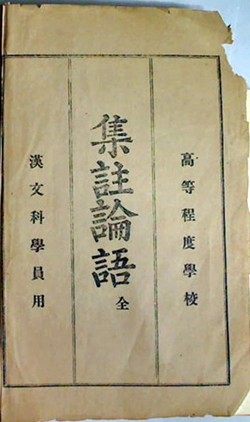 高等程度學校
集註論語 全
漢文科學員用